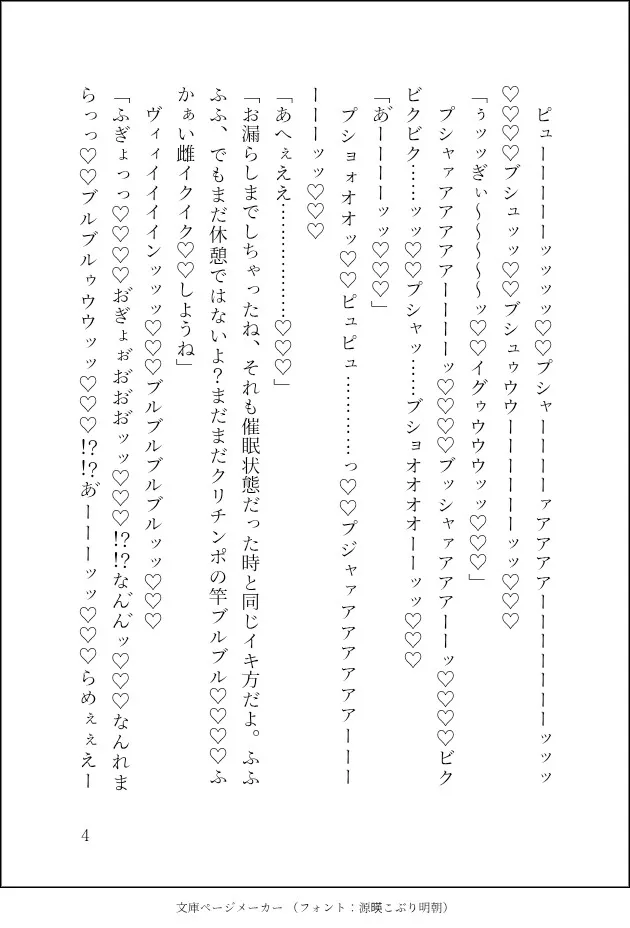 ピューーーーーッッッッ♡♡プシャーーーーァアアアアーーーーーーーッッッ
♡♡♡♡ブシュッッ♡♡ブシュゥウウーーーーーーッッ♡♡♡
「ぅッッぎぃ～～～～～ッ♡♡イグゥウウウッッ♡♡♡」
プシャァアアアアアーーーーッ♡♡♡♡ブッシャァアアアーーッ♡♡♡♡ビク
ビクビク……ッッ♡♡プシャッ……ブショオオオオーーッッ♡♡♡
「あ゙ーーーーッッ♡♡♡」
プショォオオッ♡♡ピュピュ…………っ♡♡プジャァアアアアアアーーー
ーーーッッ♡♡♡
「あへぇええ………………♡♡♡」
「お漏らしまでしちゃったね、それも催眠状態だった時と同じイキ方だよ。ふふ
ふふ、でもまだ休憩ではないよ？まだまだクリチンポの竿ブルブル♡♡♡♡ふ
かぁい雌イクイク♡♡しようね」
ヴィィイイイインッッッ♡♡♡ブルブルブルブルッッ♡♡♡
「ふぎょっっ♡♡♡♡お゙ぎょぉ゙お゙お゙お゙ッッ♡♡♡!?!?なん゙ん゙ッ♡♡♡なんれま
らっっ♡♡ブルブルゥウウッッ♡♡♡!?!?あ゙ーーーッッ♡♡♡らめぇぇえー
4
文庫ページメーカー （フォント：源暎こぶり明朝）